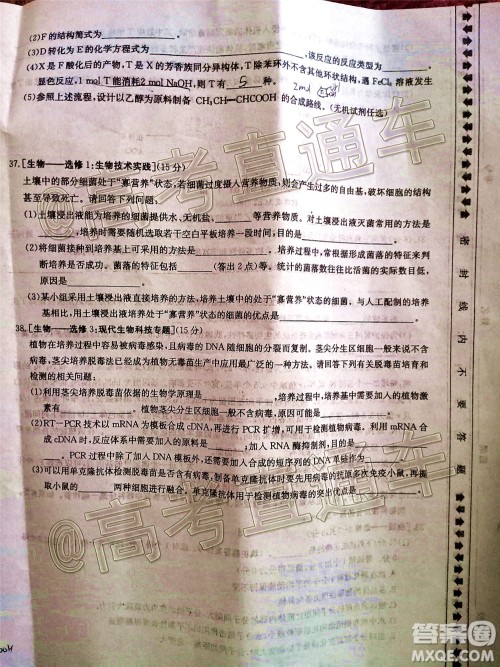 (2)F的结构简式为
(3)D转化为E的化学方程式为 ,该反应的反应类型为 。
(4)X是F酸化后的产物,T是X的芳香族同分异构体,T除苯环外不含其他环状结构,遇FeCl₃溶液发生
显色反应,1 mol T能消耗2 mol NaOH,则T有 5 种。
(5)参照上述流程,设计以乙醇为原料制备 CH₃CH—CHCOOH 的合成路线。(无机试剂任选)
37.[生物——选修1:生物技术实践](15分)
土壤中的部分细菌处于“寡营养”状态,若细菌过度摄入营养物质,则会产生过多的自由基,破坏细胞的结构
甚至导致死亡。请回答下列问题:
(1)土壤浸出液能为培养的细菌提供水、无机盐、 等营养物质。对土壤浸出液灭菌常用的方法是
,培养时需要随机选取若干空白平板培养一段时间,目的是 。
(2)将细菌接种到培养基上可采用的方法是 。培养过程中,常根据形成菌落的特征来进行
判断培养是否成功。菌落的特征包括 (答出2点)等。统计的菌落数往往比活菌的实际数目低,
原因是 。
(3)某小组采用土壤浸出液直接培养的方法,培养土壤中的处于“寡营养”状态的细菌。与人工配制的培养
基相比,用土壤浸出液培养土壤中的细菌的优点是 。
38.[生物——选修3:现代生物科技专题](15分)
植物在培养过程中容易被病毒感染,且病毒的DNA随细胞的分裂而复制。茎尖分生区细胞一般来说不含
病毒,茎尖培养脱毒法已经成为植物无毒苗生产中应用最广泛的一种方法。请回答下列有关脱毒苗培育和
检测的相关问题:
(1)利用茎尖培养脱毒苗依据的生物学原理是 ,培养过程中,培养基中需要加入的植物激
素有 。植物茎尖分生区细胞一般不含病毒,原因可能是 。
(2)RT-PCR技术以mRNA为模板合成cDNA,再进行PCR扩增,可用于检测植物病毒。以mRNA合
成cDNA时,反应体系中需要加入的原料是 ;加入RNA酶抑制剂,目的是
。PCR过程中除了加入DNA模板外,还需要加入合成的短序列的DNA单链作为 。
(3)可以用单克隆抗体检测脱毒苗是否含有病毒,制备单克隆抗体时要先用病毒的抗原多次免疫小鼠,再提
取小鼠的 两种细胞进行融合。单克隆抗体用于检测植物病毒的突出优点是 。
密封线内不要答题
@高考直通车
@高考直通车
答案圈
MXQE.COM